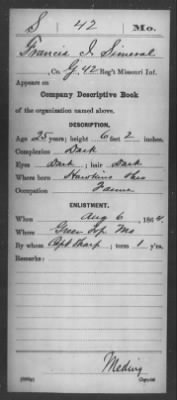 S 42 Mo.
Francis I. Simeral
, Co. G, 42 Reg't Missouri Inf.
Appears on
Company Descriptive Book
of the organization named above.
DESCRIPTION.
Age 25 years; height 6 feet 2 inches.
Complexion Dark
Eyes Dark; hair Dark
Where born Hawkins
Occupation
ENLISTMENT.
When Aug 6, 1864.
Where Green Mo
By whom Capt Sharp; term 1 y'rs.
Remarks:
Copyist.